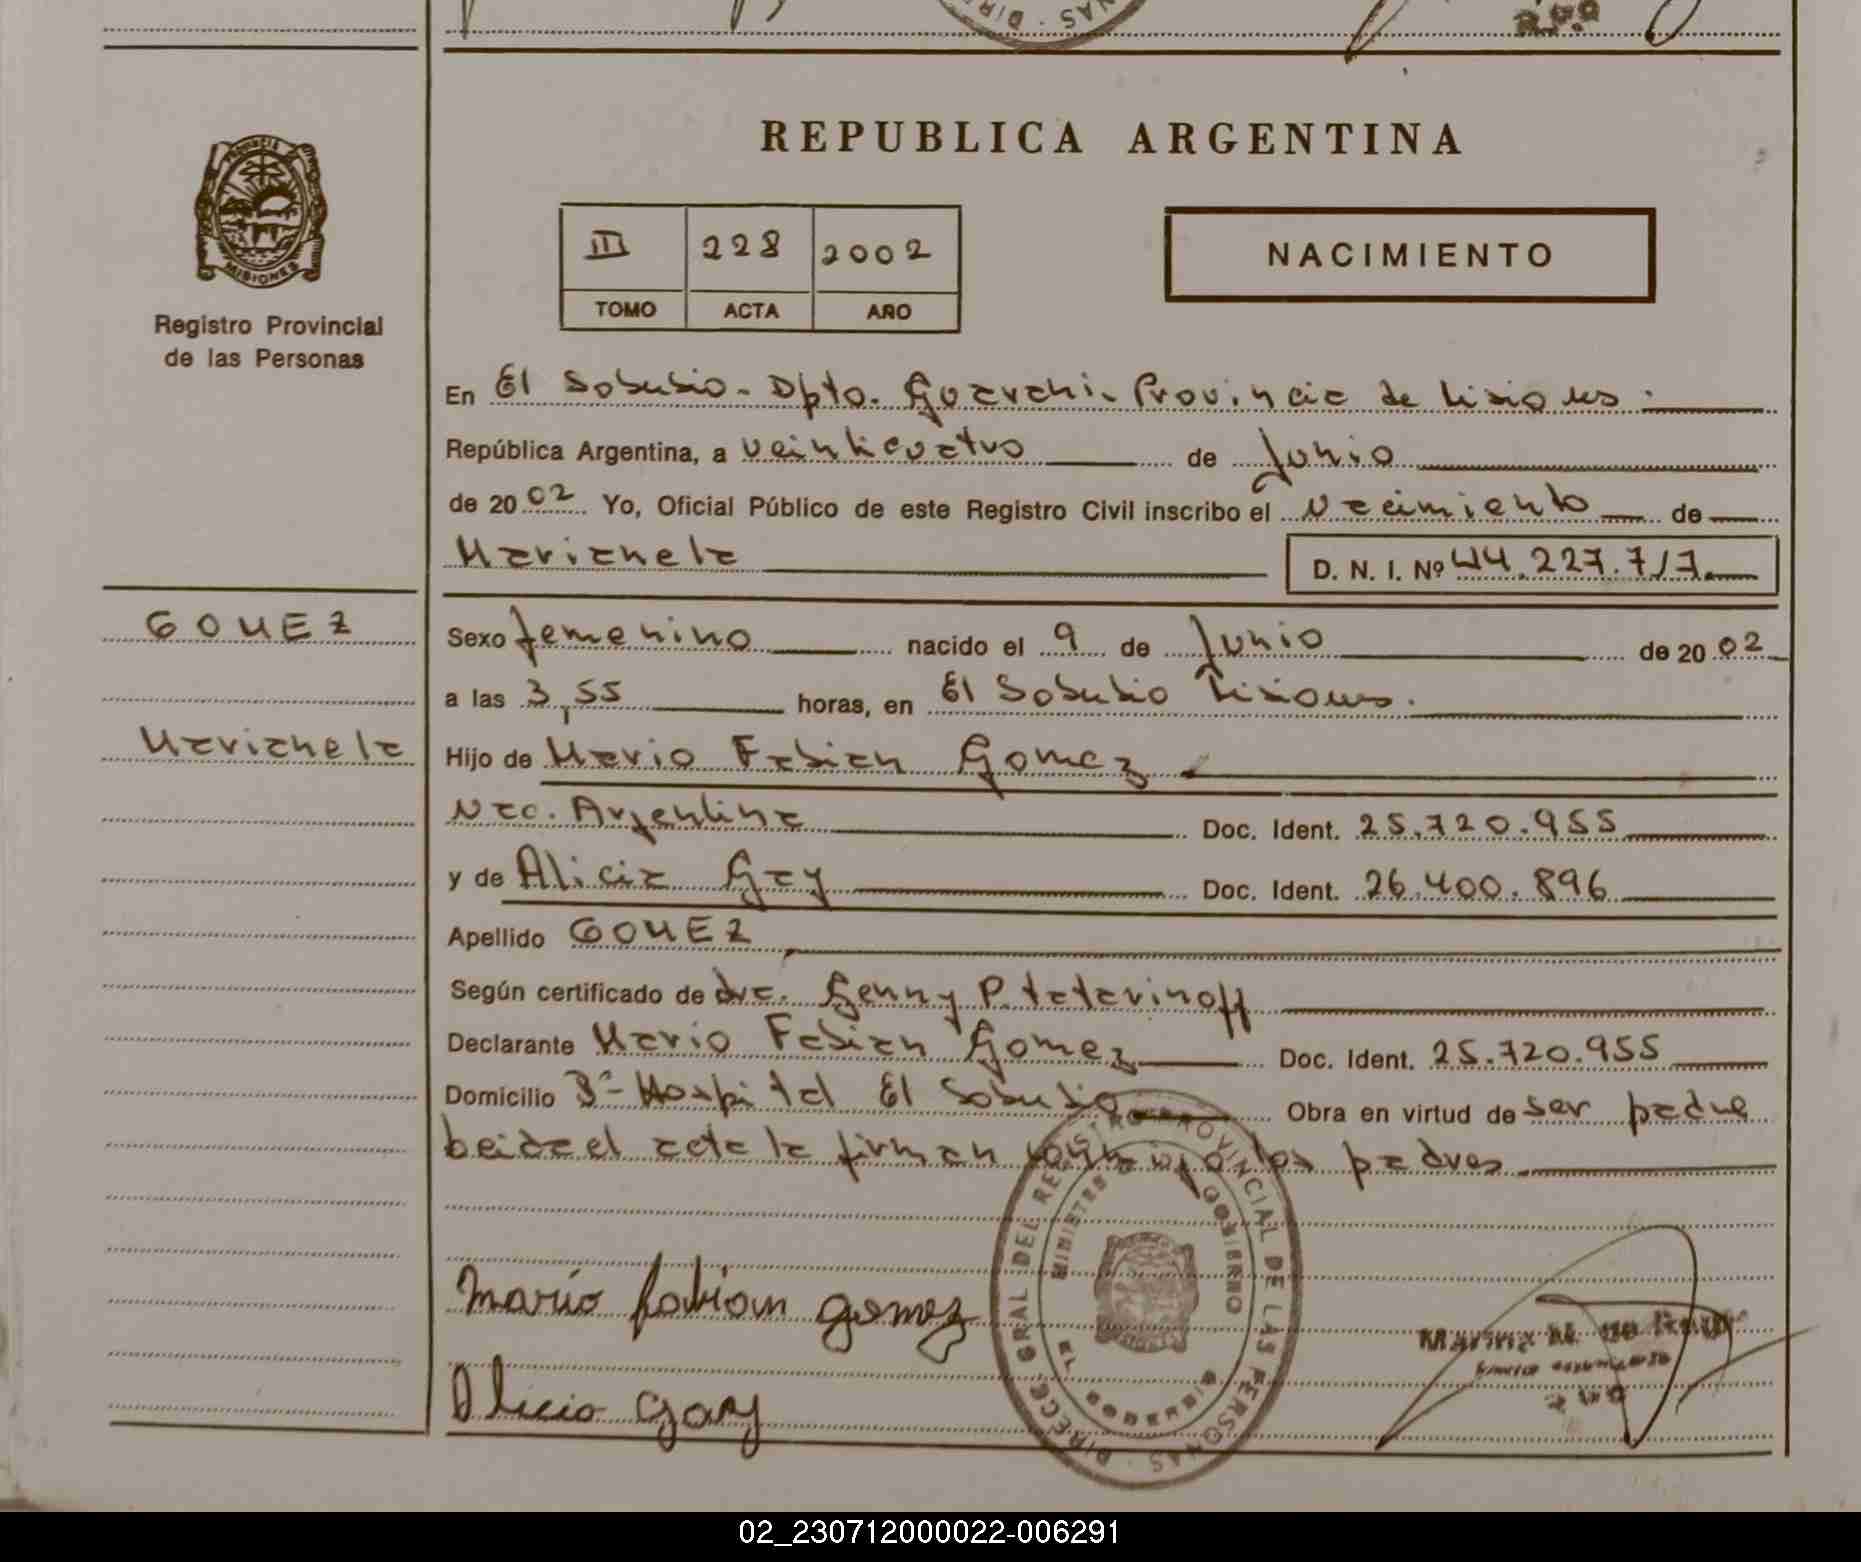 REPUBLICA ARGENTINA
PROVINCIA DE MISIONES
Registro Provincial
de las Personas
III 228 2002
TOMO ACTA AÑO
NACIMIENTO
En El Soberbio - Dpto. Guarani - Provincia de Misiones.
República Argentina, a veinticuatro de Junio
de 2002 Yo, Oficial Público de este Registro Civil inscribo el nacimiento de
Marianela D. N. I. Nº 44.227.717.
GOMEZ
Marianela
Sexo femenino nacido el 9 de Junio de 2002
a las 3,55 horas, en El Soberbio Misiones.
Hijo de Mario Fabian Gomez
Nac. Argentina Doc. Ident. 25.720.955
y de Alicia Gay Doc. Ident. 26.400.896
Apellido GOMEZ
Según certificado de dra. Genny P. tatarinoff
Declarante Mario Fabian Gomez Doc. Ident. 25.720.955
Domicilio Bº Hospital El Soberbio Obra en virtud de ser padre
Leida el acta la firman conmigo los padres
DIRECC. GRAL DEL REGISTRO PROVINCIAL DE LAS PERSONAS
MINISTERIO GOBIERNO
EL SOBERBIO
Mario fabian gomez
Alicia gay
02_230712000022-006291